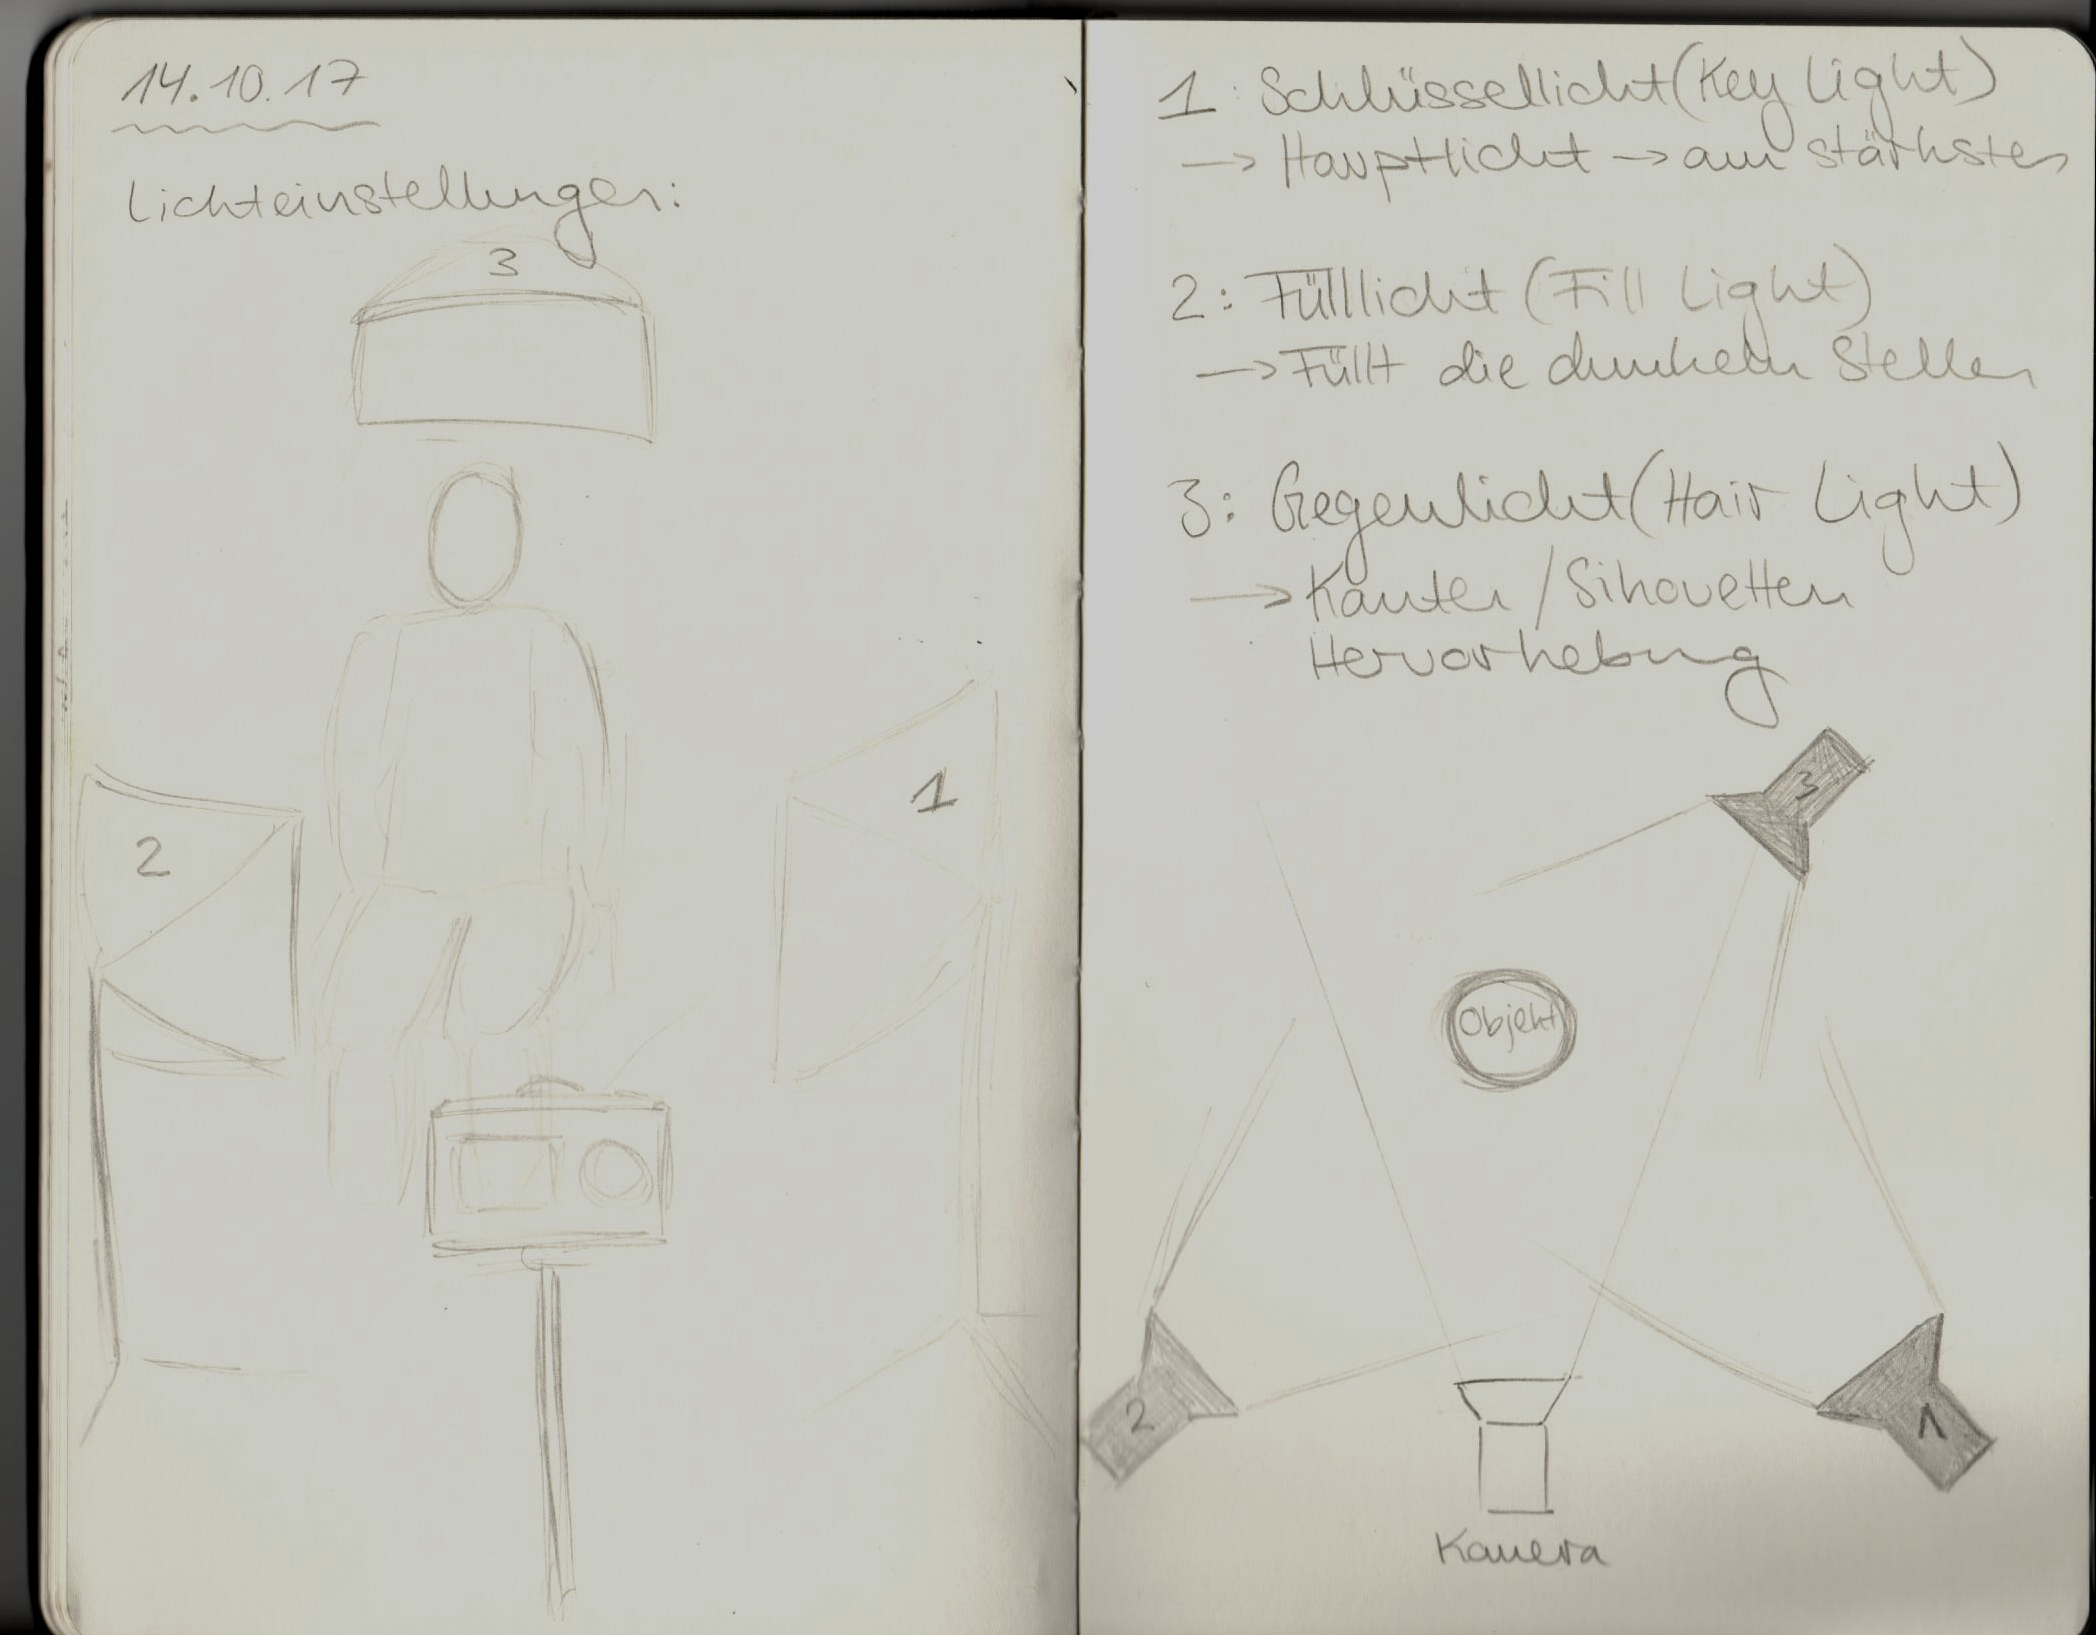 14.10.17
Lichteinstellungen:
3
1
2
1: Schlüssellicht (Key Light)
→ Hauptlicht → am stärksten
2: Fülllicht (Fill Light)
→ Füllt die dunkeln Stellen
3: Gegenlicht (Hair Light)
→ Kanten / Sihouetten
Hervorhebung
3
Objekt
2
1
Kamera